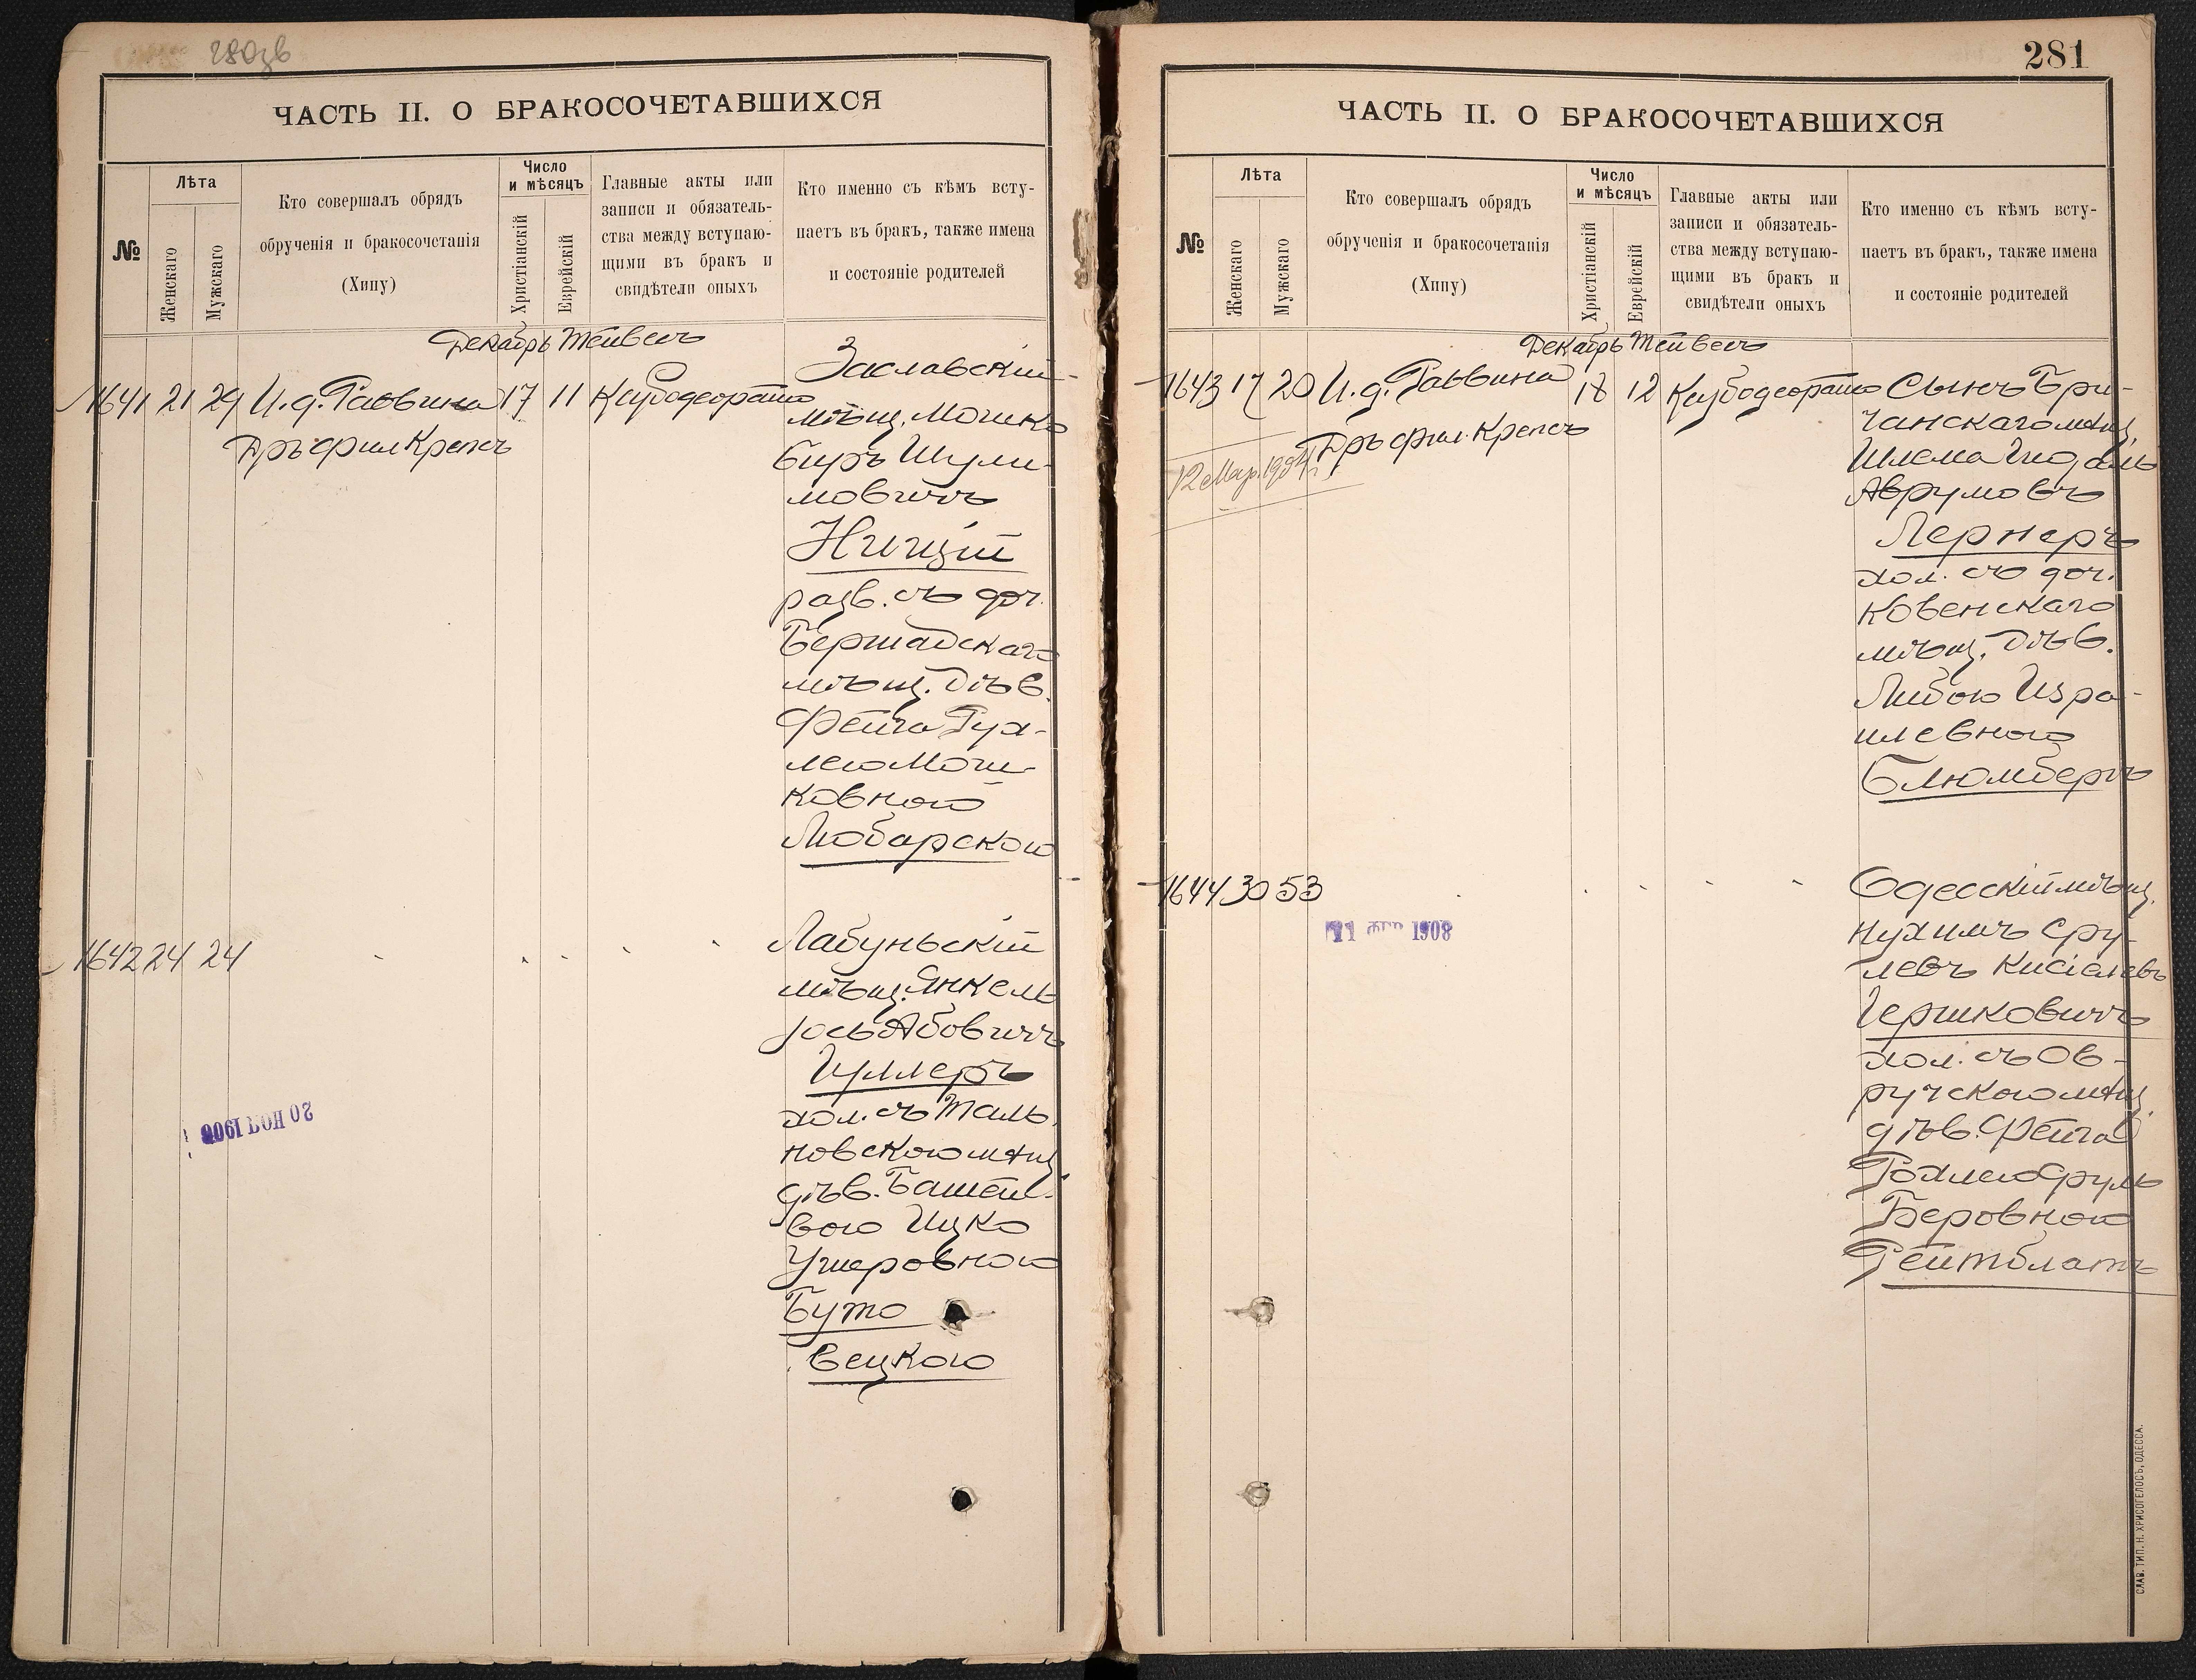 280зв
ЧАСТЬ II. О БРАКОСОЧЕТАВШИХСЯ
№
Лѣта
Женскаго
Мужскаго
Кто совершалъ обрядъ
обрученія и бракосочетанія
(Хипу)
Число
и мѣсяцъ
Христіанскій
Еврейскій
Главные акты или
записи и обязатель-
ства между вступаю-
щими въ бракъ и
свидѣтели оныхъ
Кто именно съ кѣмъ всту-
паетъ въ бракъ, также имена
и состояніе родителей
Декабрь Тейвесъ
1641 21 29 И. д. Раввина 17 11
Дръ фил Крепсъ
Заславскій
мѣщ. Мошко
Беръ Шули-
мовичъ
Ницкій
разв. съ доч.
Бершадскаго
мѣщ. дѣв.
Фейга Рух-
лею Мош-
ковною
Любарскою
1642 24 24
20 НОЯ 1906
Лабуньскій
мѣщ. Янкель
Іось Абовичъ
Гуллеръ
хол. съ Таль-
новскою мѣщ.
дѣв. Башей-
вою Ицко
Ушеровною
Буто
вецкою
281
ЧАСТЬ II. О БРАКОСОЧЕТАВШИХСЯ
№
Лѣта
Женскаго
Мужскаго
Кто совершалъ обрядъ
обрученія и бракосочетанія
(Хипу)
Число
и мѣсяцъ
Христіанскій
Еврейскій
Главные акты или
записи и обязатель-
ства между вступаю-
щими въ бракъ и
свидѣтели оныхъ
Кто именно съ кѣмъ всту-
паетъ въ бракъ, также имена
и состояніе родителей
Декабрь Тейвесъ
1643 17 20 И. д. Раввина 18 12
Дръ фил. Крепсъ
12 Мар. 1904 г.
Сынъ Бри-
чанскаго мѣщ.
Шлема Гидаль
Аврумовъ
Лернеръ
хол. съ доч.
Ковенскаго
мѣщ. дѣв.
Либою Изра-
илевною
Блюмбергъ
1644 30 53
1908
Одесскій мѣщ.
Нухимъ Сру-
левъ Кисіелевъ
Гершковичъ
хол. съ Ов-
ручскою мѣщ.
дѣв. Фейга
Рохлею Сруль
Беровною
Рейтблатъ
СЛАВ. ТИП. Н. ХРИСОГЕЛОСЪ, ОДЕССА.